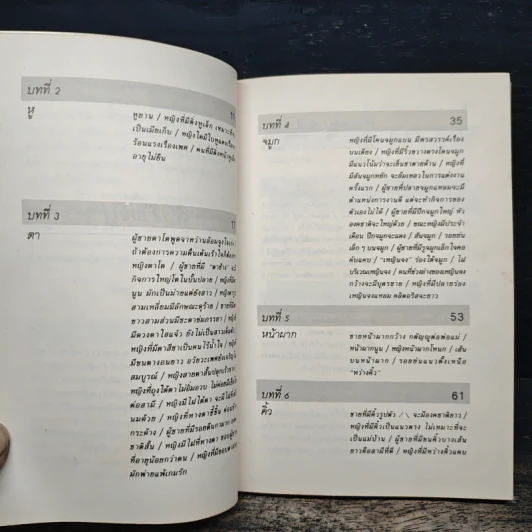 บทที่ 2
หู
หูยาน / หญิงที่มีติ่งหูเล็ก เหมาะที่จะ
เป็นเมียเก็บ / หญิงใดมีใบหูแดงเรื่อ
ร้อนแรงเรื่องเพศ / คนที่มีติ่งหน้าหู
อายุไม่ยืน
บทที่ 3
ตา
ผู้ชายตาโตพูดจาหว่านล้อมจูงใจเก่ง
ถ้าต้องการความตื่นเต้นเร้าใจให้
หญิงตาโต / ผู้ชายที่มี "ตาช้าง" จะ
กิจการใหญ่โตในบั้นปลาย / หญิงตา
นูน มักเป็นม่ายแต่ยังสาว / หญิงตา
สามเหลี่ยมมีลักษณะดุร้าย / ชาย
ยาวสามส่วนมียะตาข่มภรรยา /
มีดวงตาใสแจ๋ว ยังไม่เป็นสาวเต็มตัว
หญิงที่มีตาสีขาวเป็นคนไร้น้ำใจ /
มีขนตางอนยาว อวัยวะเพศยังเจริญไม่
สมบูรณ์ / หญิงสายตาสั้นปลุกเร้า
หญิงที่ถุงใต้ตาไม่อิ่มอวบ ไม่ค่อยมี
ต่อสามี / หญิงมีไฝใต้ตา จะดีใส่
นมด้วย / หญิงที่หางตาชี้ขึ้น ค่อนข้าง
กระด้าง / ผู้ชายที่มีรอยตีนกามาก
ชาติสั้น / หญิงมีไฝที่หางตา ชอบผู้ชาย
ที่อายุน้อยกว่าตน / หญิงที่มีขอบตา
มักพ่ายแพ้เกมรัก
บทที่ 4 35
จมูก
หญิงที่มีโดนจมูกแบน มีพรสวรรค์เรื่อง
บนเตียง / หญิงที่มีริ้วขวางตรงโดนจมูก
มีแนวโน้มว่าจะเย็นชาตายด้าน / หญิงที่
มีสันจมูกหัก จะล้มเหลวในการแต่งงาน
ครั้งแรก / ผู้ชายที่ปลายจมูกแหลมจะมี
ตำแหน่งการงานดี แต่จะทำกิจการของ
ตัวเองไม่ได้ / ผู้ชายที่มีปีกจมูกใหญ่ หัว
องคชาติจะใหญ่ด้วย / ขณะหญิงมีประจำ
เดือน ปีกจมูกจะแดง / สันจมูก / รอยย่น
เล็ก ๆ บนจมูก / ผู้ชายที่มีรูจมูกเล็กใจคอ
คับแคบ / "เหยินจง" ร่องใต้จมูก / ไฝ
บริเวณเหยินจง / คนที่ช่วงล่างของเหยินจง
กว้างจะมีบุตรชาย / หญิงที่มีปลายร่อง
เหยินจงแหลม คลิตอริสจะยาว
บทที่ 5 53
หน้าผาก
ชายหน้าผากกว้าง กตัญญูต่อพ่อแม่
/ หน้าผากนูน / หญิงหน้าผากโหนก / เส้น
บนหน้าผาก / รอยย่นแนวตั้งเหนือ
"หว่างคิ้ว"
บทที่ 6 61
คิ้ว
ชายที่มีคิ้วรูปตัว /\ จะมีองคชาติยาว /
หญิงที่มีคิ้วเป็นแนวขวาง ไม่เหมาะที่จะ
เป็นแม่บ้าน / ผู้ชายที่มีขนคิ้วบางเส้น
ยาวคือสามีที่ดี / หญิงที่มีหว่างคิ้วแคบ